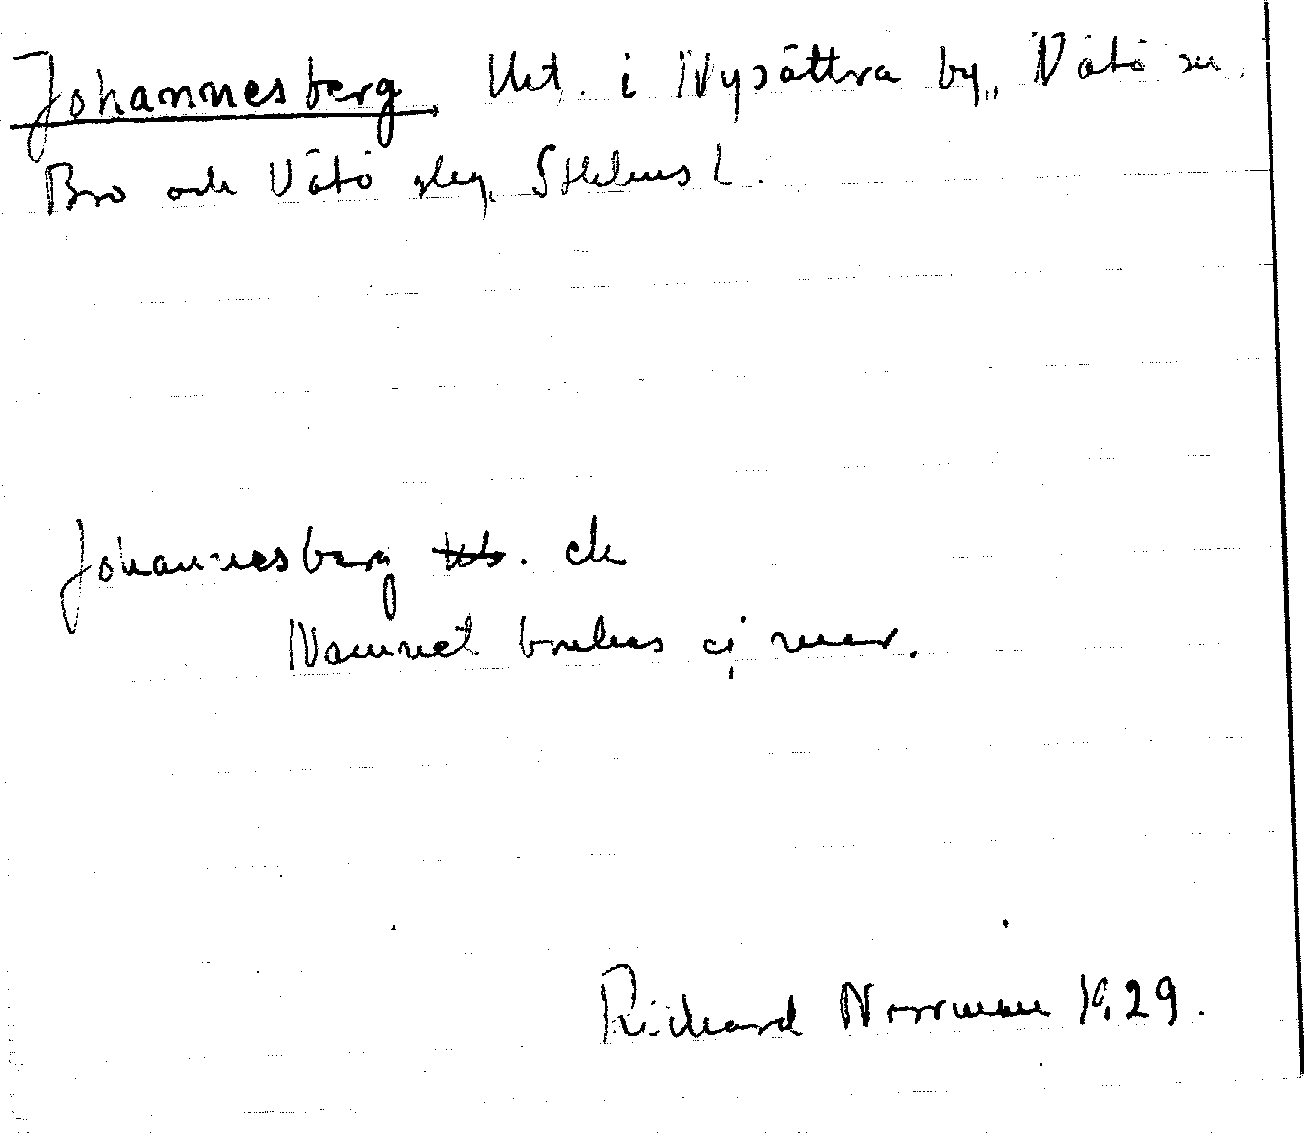 Johannesberg, Utt. i Nysättra by, Vätö sn.
Bro och Vätö slg, Sthlms L.
Johannesberg ek
Namnet brukas ej mer.
Richard Norrman 1929.